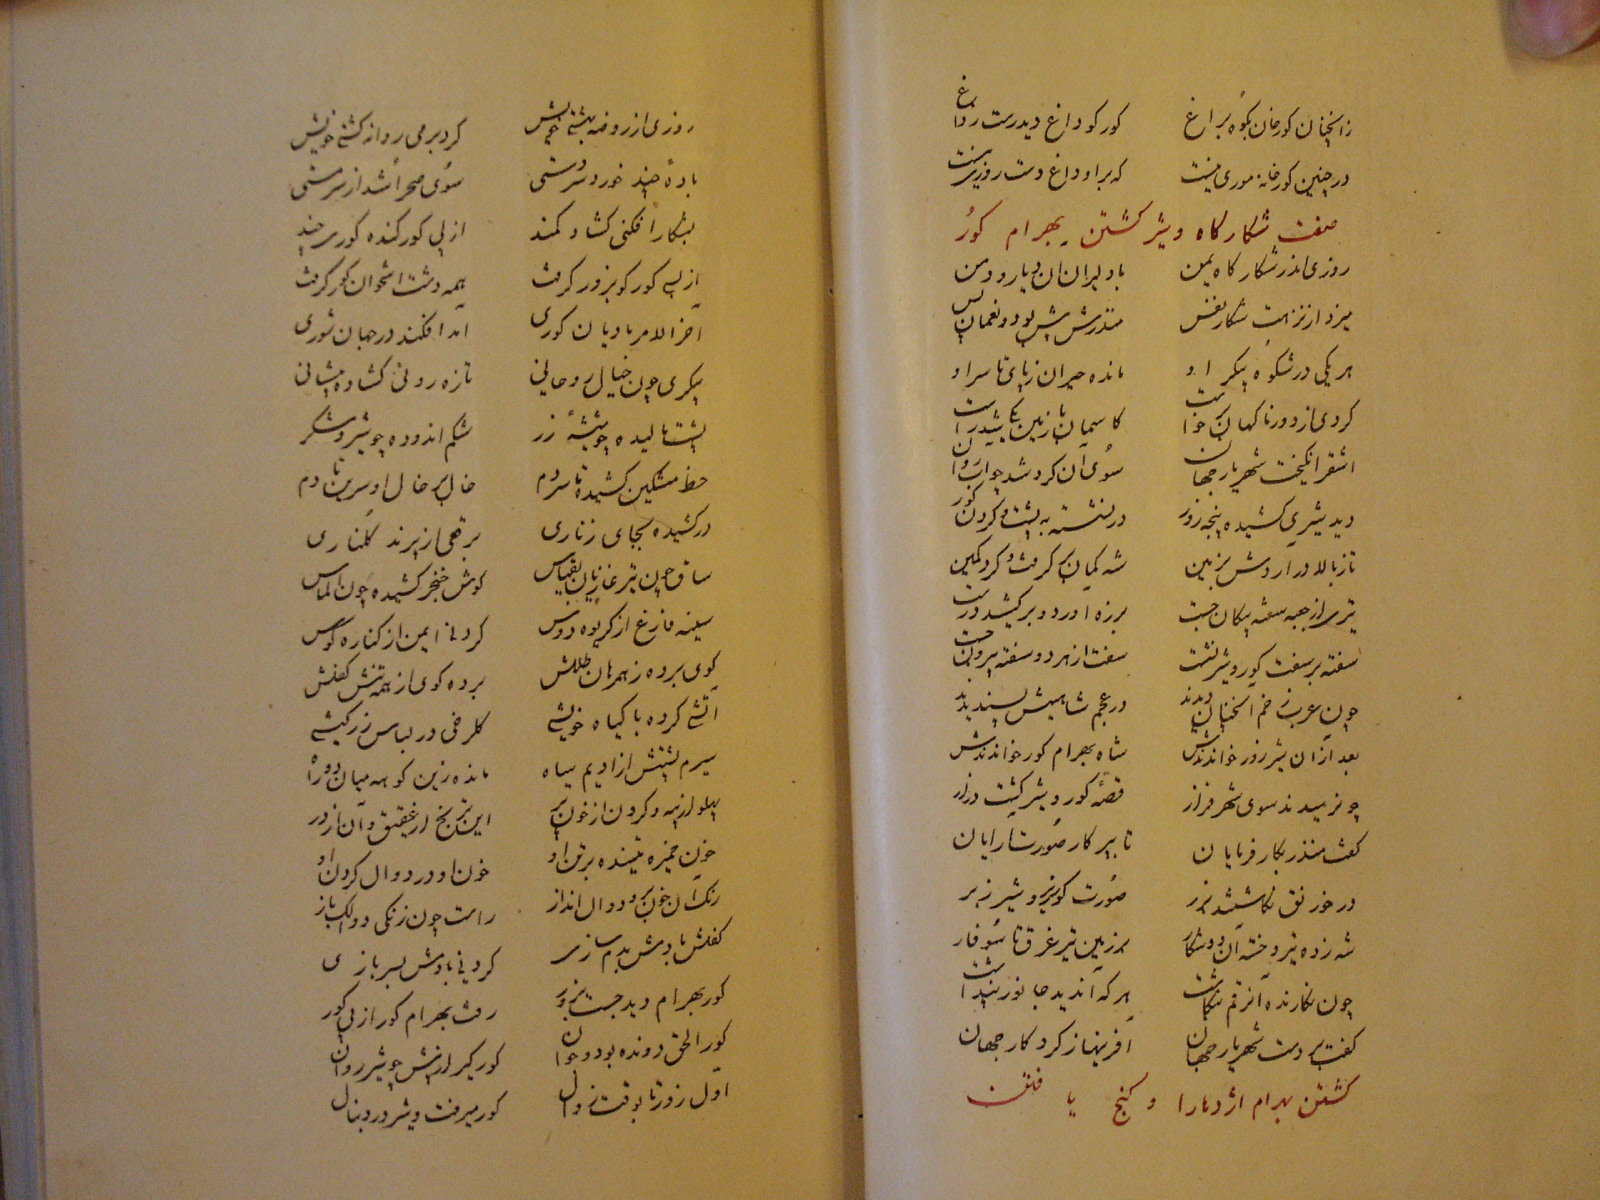 زانچنان کورخان بکوه براغ کور کو داغ دید رست زداغ
در چنین کورخانه موری نیست که براو داغ دست زوری نیست
صفت شکار کاه و شیر کشتن بهرام کور
روزی اندر شکار کاه یمن با دلیران ان دیار و دمن
میزد از نزهت شکار نفس منذرش پیش بود و نعمان پس
هر یکی در شکوه پیکر او مانده حیران زپای تا سر او
کردی از دور ناکهان برخاست کاسمان با زمین یکی شد راست
اشقر انکیخت شهریار جهان سوی ان کرد شد چو اب روان
دید شیری کشیده پنجه زور در نشسته به پشت و کردن کور
تا ز بالا در اردش بزمین شه کمان بر کرفت و کرد کمین
تیری از جعبه سفته پیکان جست بر زه اورد و بر کشید درست
سفته بر سفت کور و شیر نشست سفت از هر دو سفته بیرون جست
چون عرب زخم انچنان دیدند در عجم شاهیش پسندیدند
بعد ازان شیر زور خواندندش شاه بهرام کور خواندندش
چون رسیدند سوی شهر فراز قصه کور و شیر کشت دراز
کفت منذر بکار فرمایان تا بپرکار صورت ارایان
در خورنق نکاشتند بزر صورت کور زیر و شیر زبر
شه زده تیر و جسته آن دو شکار در زمین تیر غرق تا سوفار
چون نکارنده این رقم بنکاشت هر که آن دید جانور پنداشت
کفت بر دست شهریار جهان آفرینها ز کردکار جهان
کشتن بهرام اژدها را و کنج یافتن
روزی از روضه بهشتی خویش کرد بر می روانه کشتی خویش
باده چند خورد سردستی سوی صحرا شد از سرمستی
بشکار افکنی کشاد کمند از پی کور کنده کوری چند
از بسی کور کو بزور کرفت همه دشت استخوان کور کرفت
اخر الامر مادیان کوری امد افکند در جهان شوری
پیکری چون خیال روحانی تازه روئی کشاده پیشانی
پشت مالیده چو شوشهٔ زر شکم اندوده چو شیر و شکر
خط مشکین کشیده تا سر دم خال بر خال از سرین تا دم
در کشیده بجای زناری برقعی از پرند کلناری
ساق چون تیر غازیان بقیاس کوش خنجر کشیده چون الماس
سینه فارغ از کریوه دوش کردنی ایمن از کناره کوش
کوی برده زهمرهان طللش برده کوی از همه تنش کفلش
آتشی کرده با کیاه خویشی کلرخی در لباس زر کشی
سیرم پشتش از ادیم سیاه مانده زین کوهه میان دو راه
پهلو از پیه و کردن از خون پر این بریخ از عقیق و آن از در
خون چیزه تنیده بر تن او خون او در دوال کردن او
رنک آن خون بر دوال انداز راست چون زنکی دوالک باز
کفلش با دمش بدمسازی کردنی با دمش بسر بازی
کور بهرام دید جست بزور رفت بهرام کور از پی کور
کور الحق دونده بود و جوان کور کیر از پیش چو شیر روان
اول روز تا بوقت زوال کور میرفت و شیر در دنبال